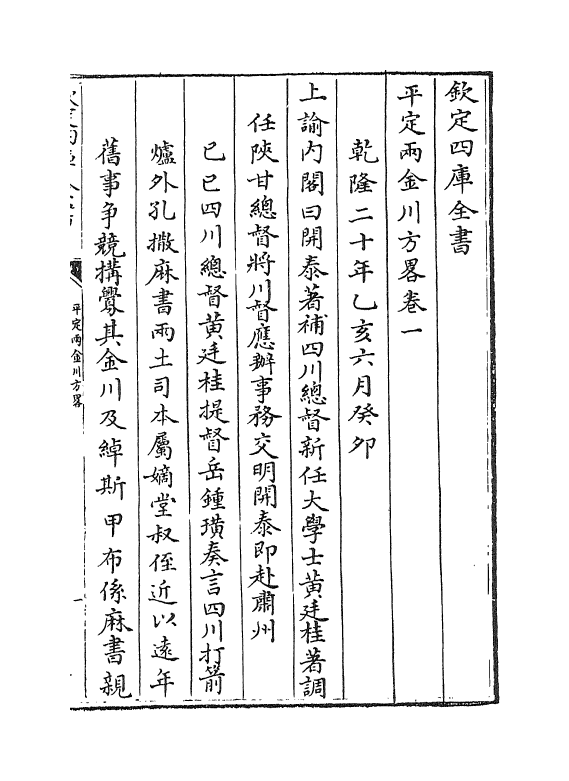 欽定四庫全書
平定兩金川方畧卷一
乾隆二十年乙亥六月癸卯
上諭內閣曰開泰著補四川總督新任大學士黃廷桂著調
任陜甘總督將川督應辦事務交明開泰即赴肅州
己巳四川總督黃廷桂提督岳鍾璜奏言四川打箭
爐外孔撒麻書兩土司本屬嫡堂叔侄近以遠年
舊事争競搆釁其金川及綽斯甲布係麻書親
平定兩金川方畧
一